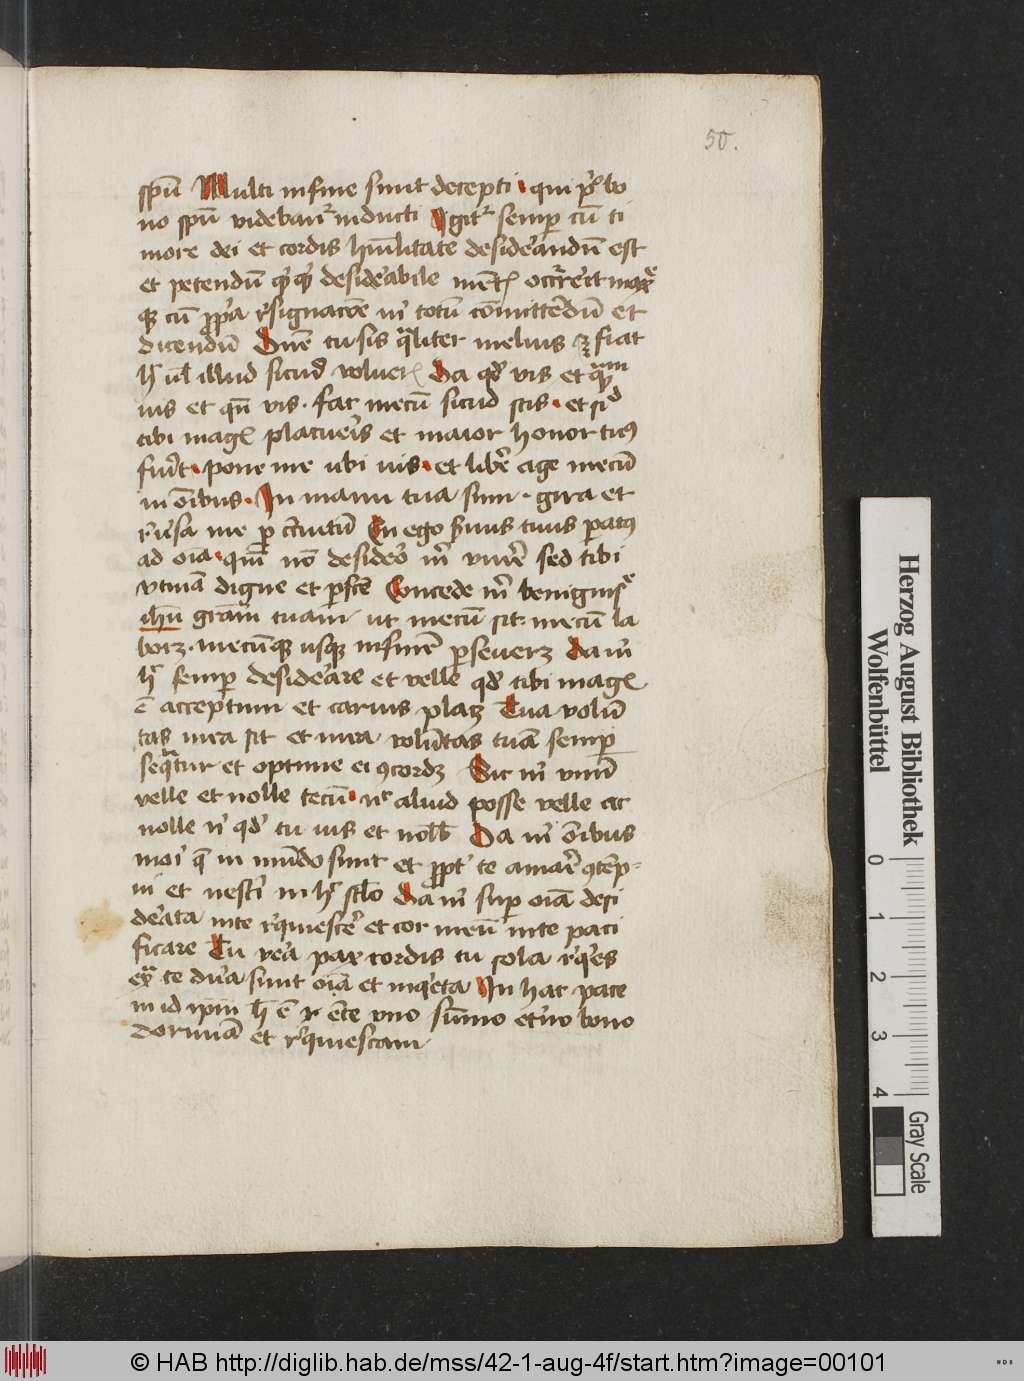 50.
spm̄ Multi in fine sunt decepti · qui p̄ bo
no spū videbant᷑ inducti Igit᷑ semp cū ti
more dei et cordis hūilitate desideʼandū est
et petendū qͥqͥ desideʼabile menti occr̄reʼit max̄
qꝫ cū ppʼa rʼsignacōe mʼ totū cōmittēdū et
dicendū Dnē tu sis qͣliter melius ꝫ fiat
hͦ ul̄ illud sicud volueris Da qd̄ vis et qͣntum
uis et qn̄ vis · fac mecū sicud scis · et sicd
tibi magis placueʼis et maior honor tuꝰ
fuēit · pone me ubi uis · et libēe age mecū
in oībus · In manu tua sum · gira et
rʼusa me p circuitū En ego sʼuus tuus patꝰ
ad oīa · qm̄ nō desideʼo mʼ viuēre sed tibi
vtinā digne et pfcē Concede mʼ benignisē
ihū grām tuam ut mecū sit · mecū la
borꝫ · mecūqꝫ usqꝫ in finē pseuerꝫ Da mʼ
hͦ semp desideʼare et velle qd̄ tibi magis
ē acceptum et carius placꝫ Tua volūn
tas mea sit et mea volūtas tuā semp
seqͣtur et optime ei ꝯcordꝫ Sit mʼ vnū
velle et nolle tecū · nec aliud posse velle ac
nolle nʼ qd̄ tu uis et nolis Da mʼ oībus
moʼi q̄ in mūdo sunt et ppt̄ te amāri ꝯtēp-
ni et nesciʼ in hͦ sclo Da mʼ sup oīa desi
deʼata in te rʼquiesceʼ et cor meū in te paci
ficare Tu veʼa pax cordis tu sola rʼqͥes
exͣ te duʼa sunt oīa et inqͥeta In hac pace
in id ipm̄ hͦ ē ī te vno sūmo etʼno bono
dormiā et rʼquiescam
Herzog August Bibliothek
Wolfenbüttel
0 1 2 3 4
Gray Scale
© HAB http://diglib.hab.de/mss/42-1-aug-4f/start.htm?image=00101